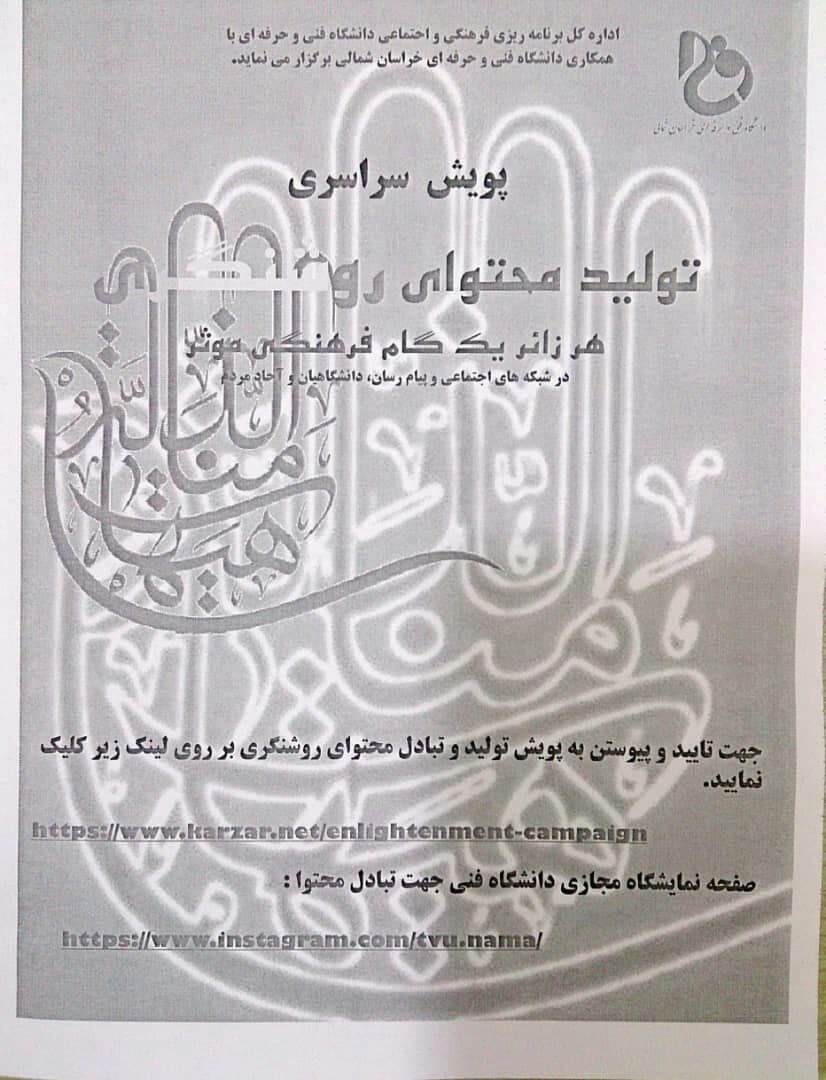 اداره کل برنامه ریزی فرهنگی و اجتماعی دانشگاه فنی و حرفه ای با
همکاری دانشگاه فنی و حرفه ای خراسان شمالی برگزار می نماید.
دانشگاه فنی و حرفه ای خراسان شمالی
پویش سراسری
تولید محتوای روشنگری
هر زائر یک گام فرهنگی موثر
در شبکه های اجتماعی و پیام رسان، دانشگاهیان و آحاد مردم
هیهات
منا
الذلة
جهت تایید و پیوستن به پویش تولید و تبادل محتوای روشنگری بر روی لینک زیر کلیک
نمایید.
https://www.karzar.net/enlightenment-campaign
صفحه نمایشگاه مجازی دانشگاه فنی جهت تبادل محتوا :
https://www.instagram.com/tvu.nama/